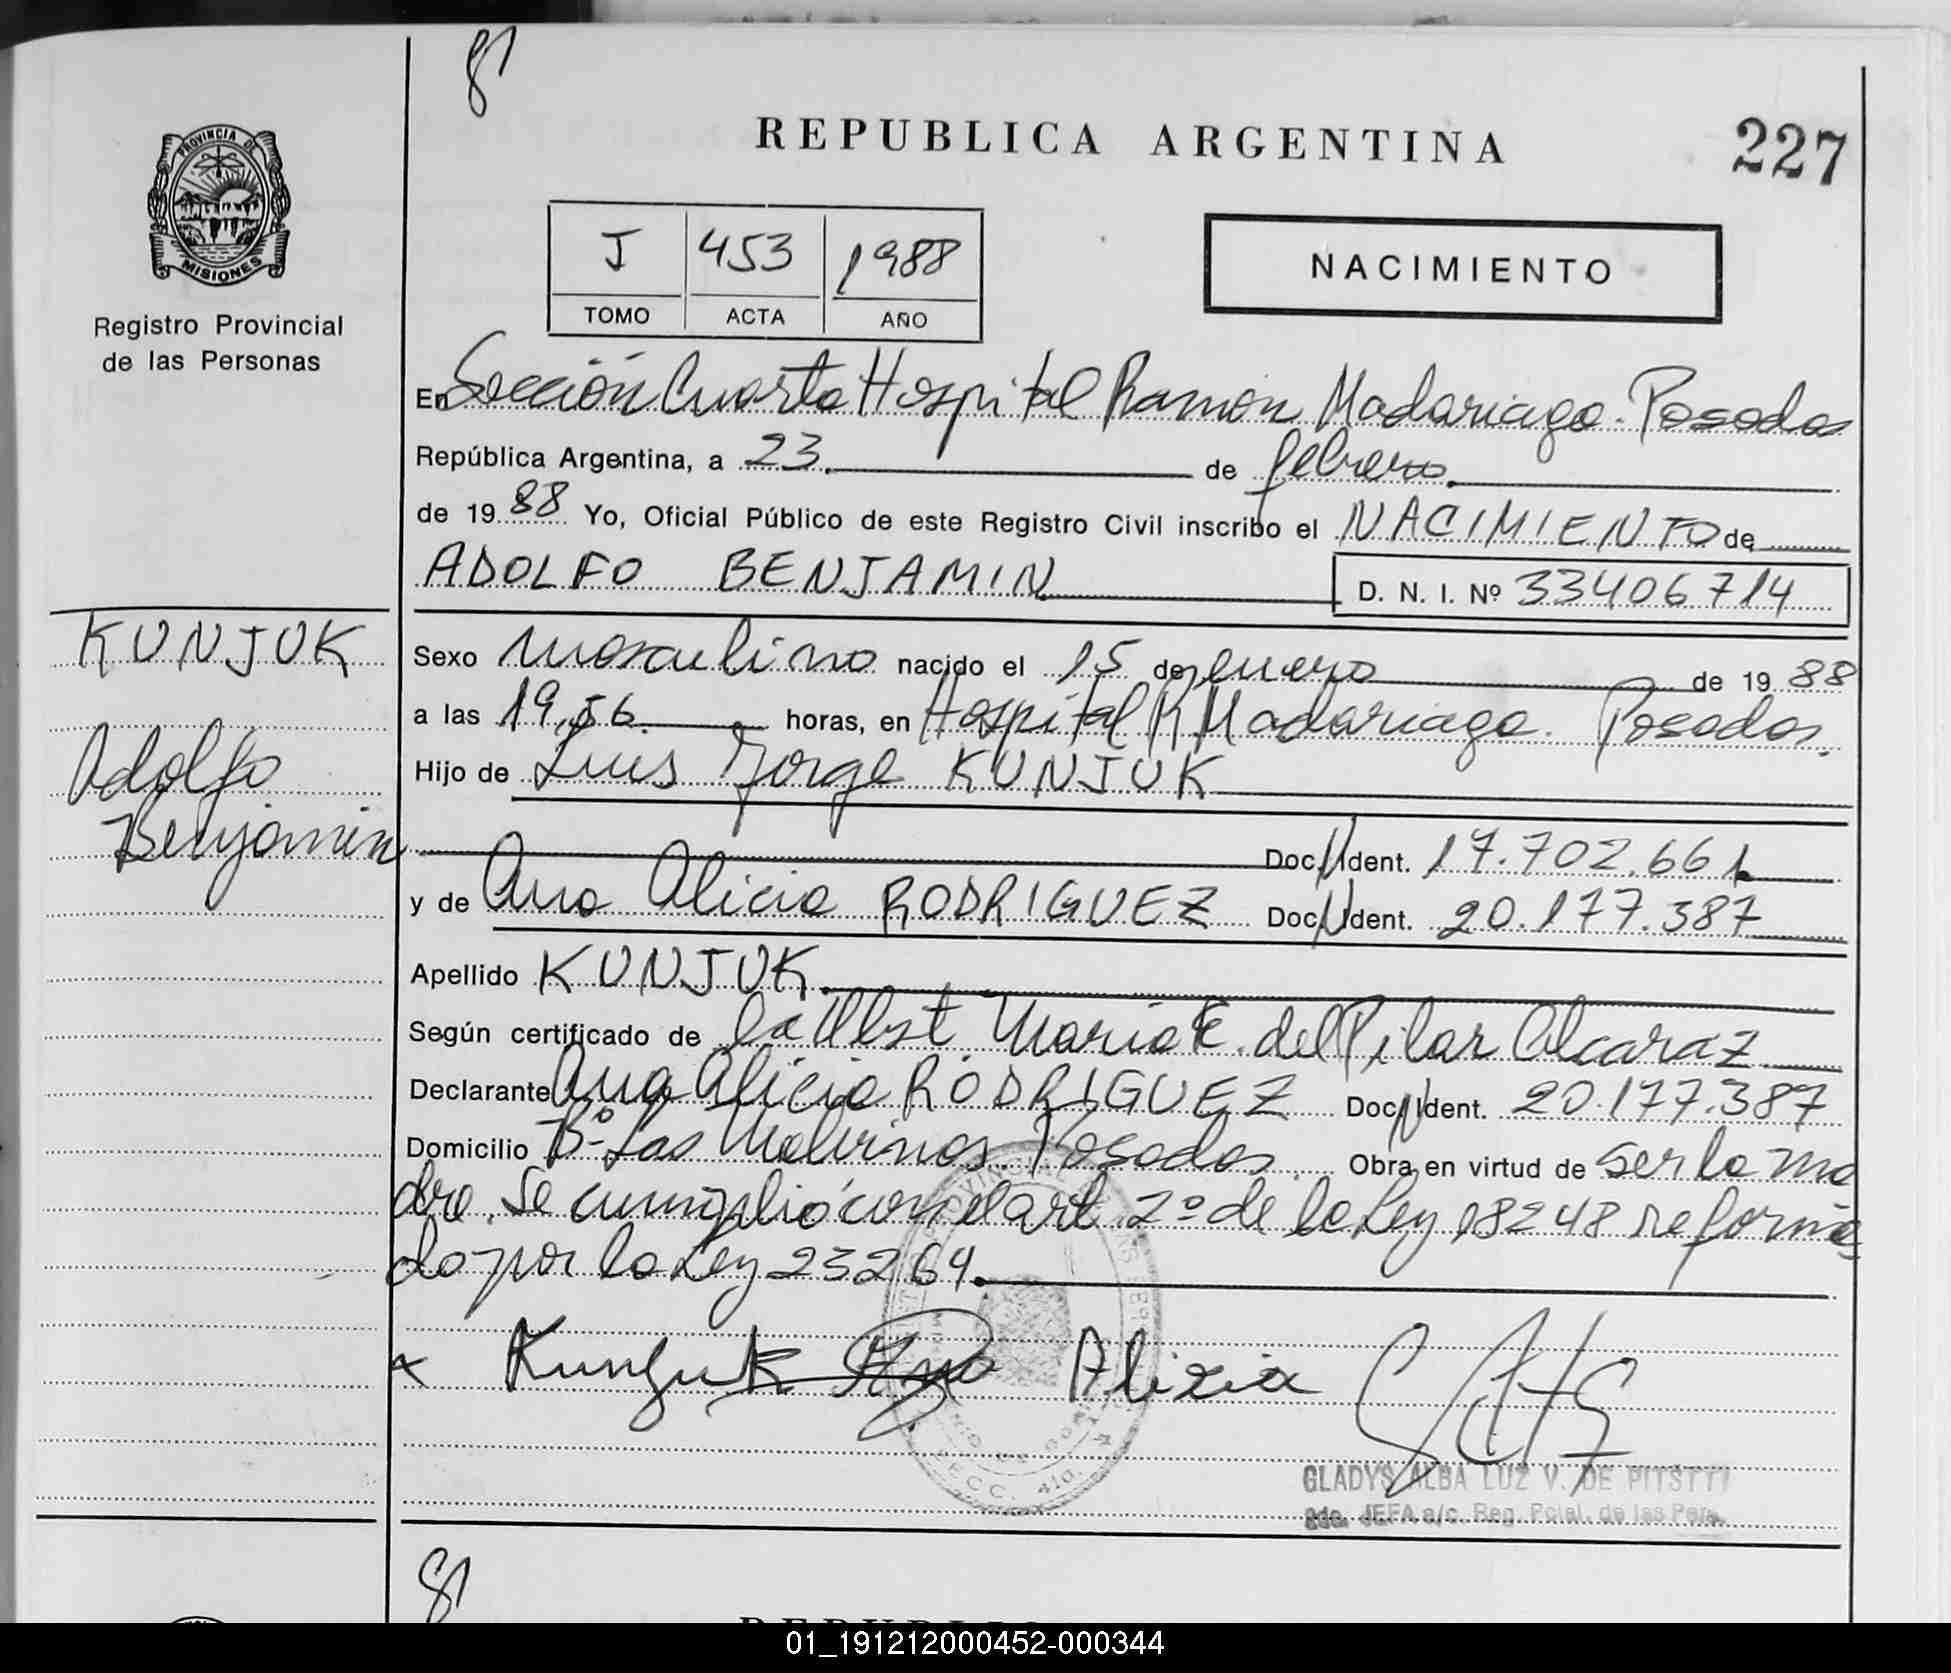 81
REPUBLICA ARGENTINA
227
PROVINCIA DE
MISIONES
Registro Provincial
de las Personas
J 453 1988
TOMO ACTA AÑO
NACIMIENTO
En Sección Cuarta Hospital Ramón Madariaga. Posadas
República Argentina, a 23 de febrero
de 1988 Yo, Oficial Público de este Registro Civil inscribo el NACIMIENTO de
ADOLFO BENJAMIN D. N. I. Nº 33406714
KUNJUK
Adolfo
Benjamin
Sexo masculino nacido el 15 de enero de 1988
a las 19,56 horas, en Hospital R Madariaga. Posadas.
Hijo de Luis Jorge KUNJUK
Doc. N Ident. 17.702.661
y de Ana Alicia RODRIGUEZ Doc. N Ident. 20.177.387
Apellido KUNJUK
Según certificado de la Obst María E. del Pilar Alcaraz
Declarante Ana Alicia RODRIGUEZ Doc. N Ident. 20.177.387
Domicilio Bº Las Malvinas. Posadas. Obra en virtud de ser la ma
dre. Se cumplió con el art. 2º de la Ley 18248 reforma
do por la Ley 23264.
x Kunjuk Ana Alicia
GLADYS ALBA LUZ V. DE PITSTTI
2da. JEFA a/c. Reg. Pcial. de las Pers.
81
01_191212000452-000344